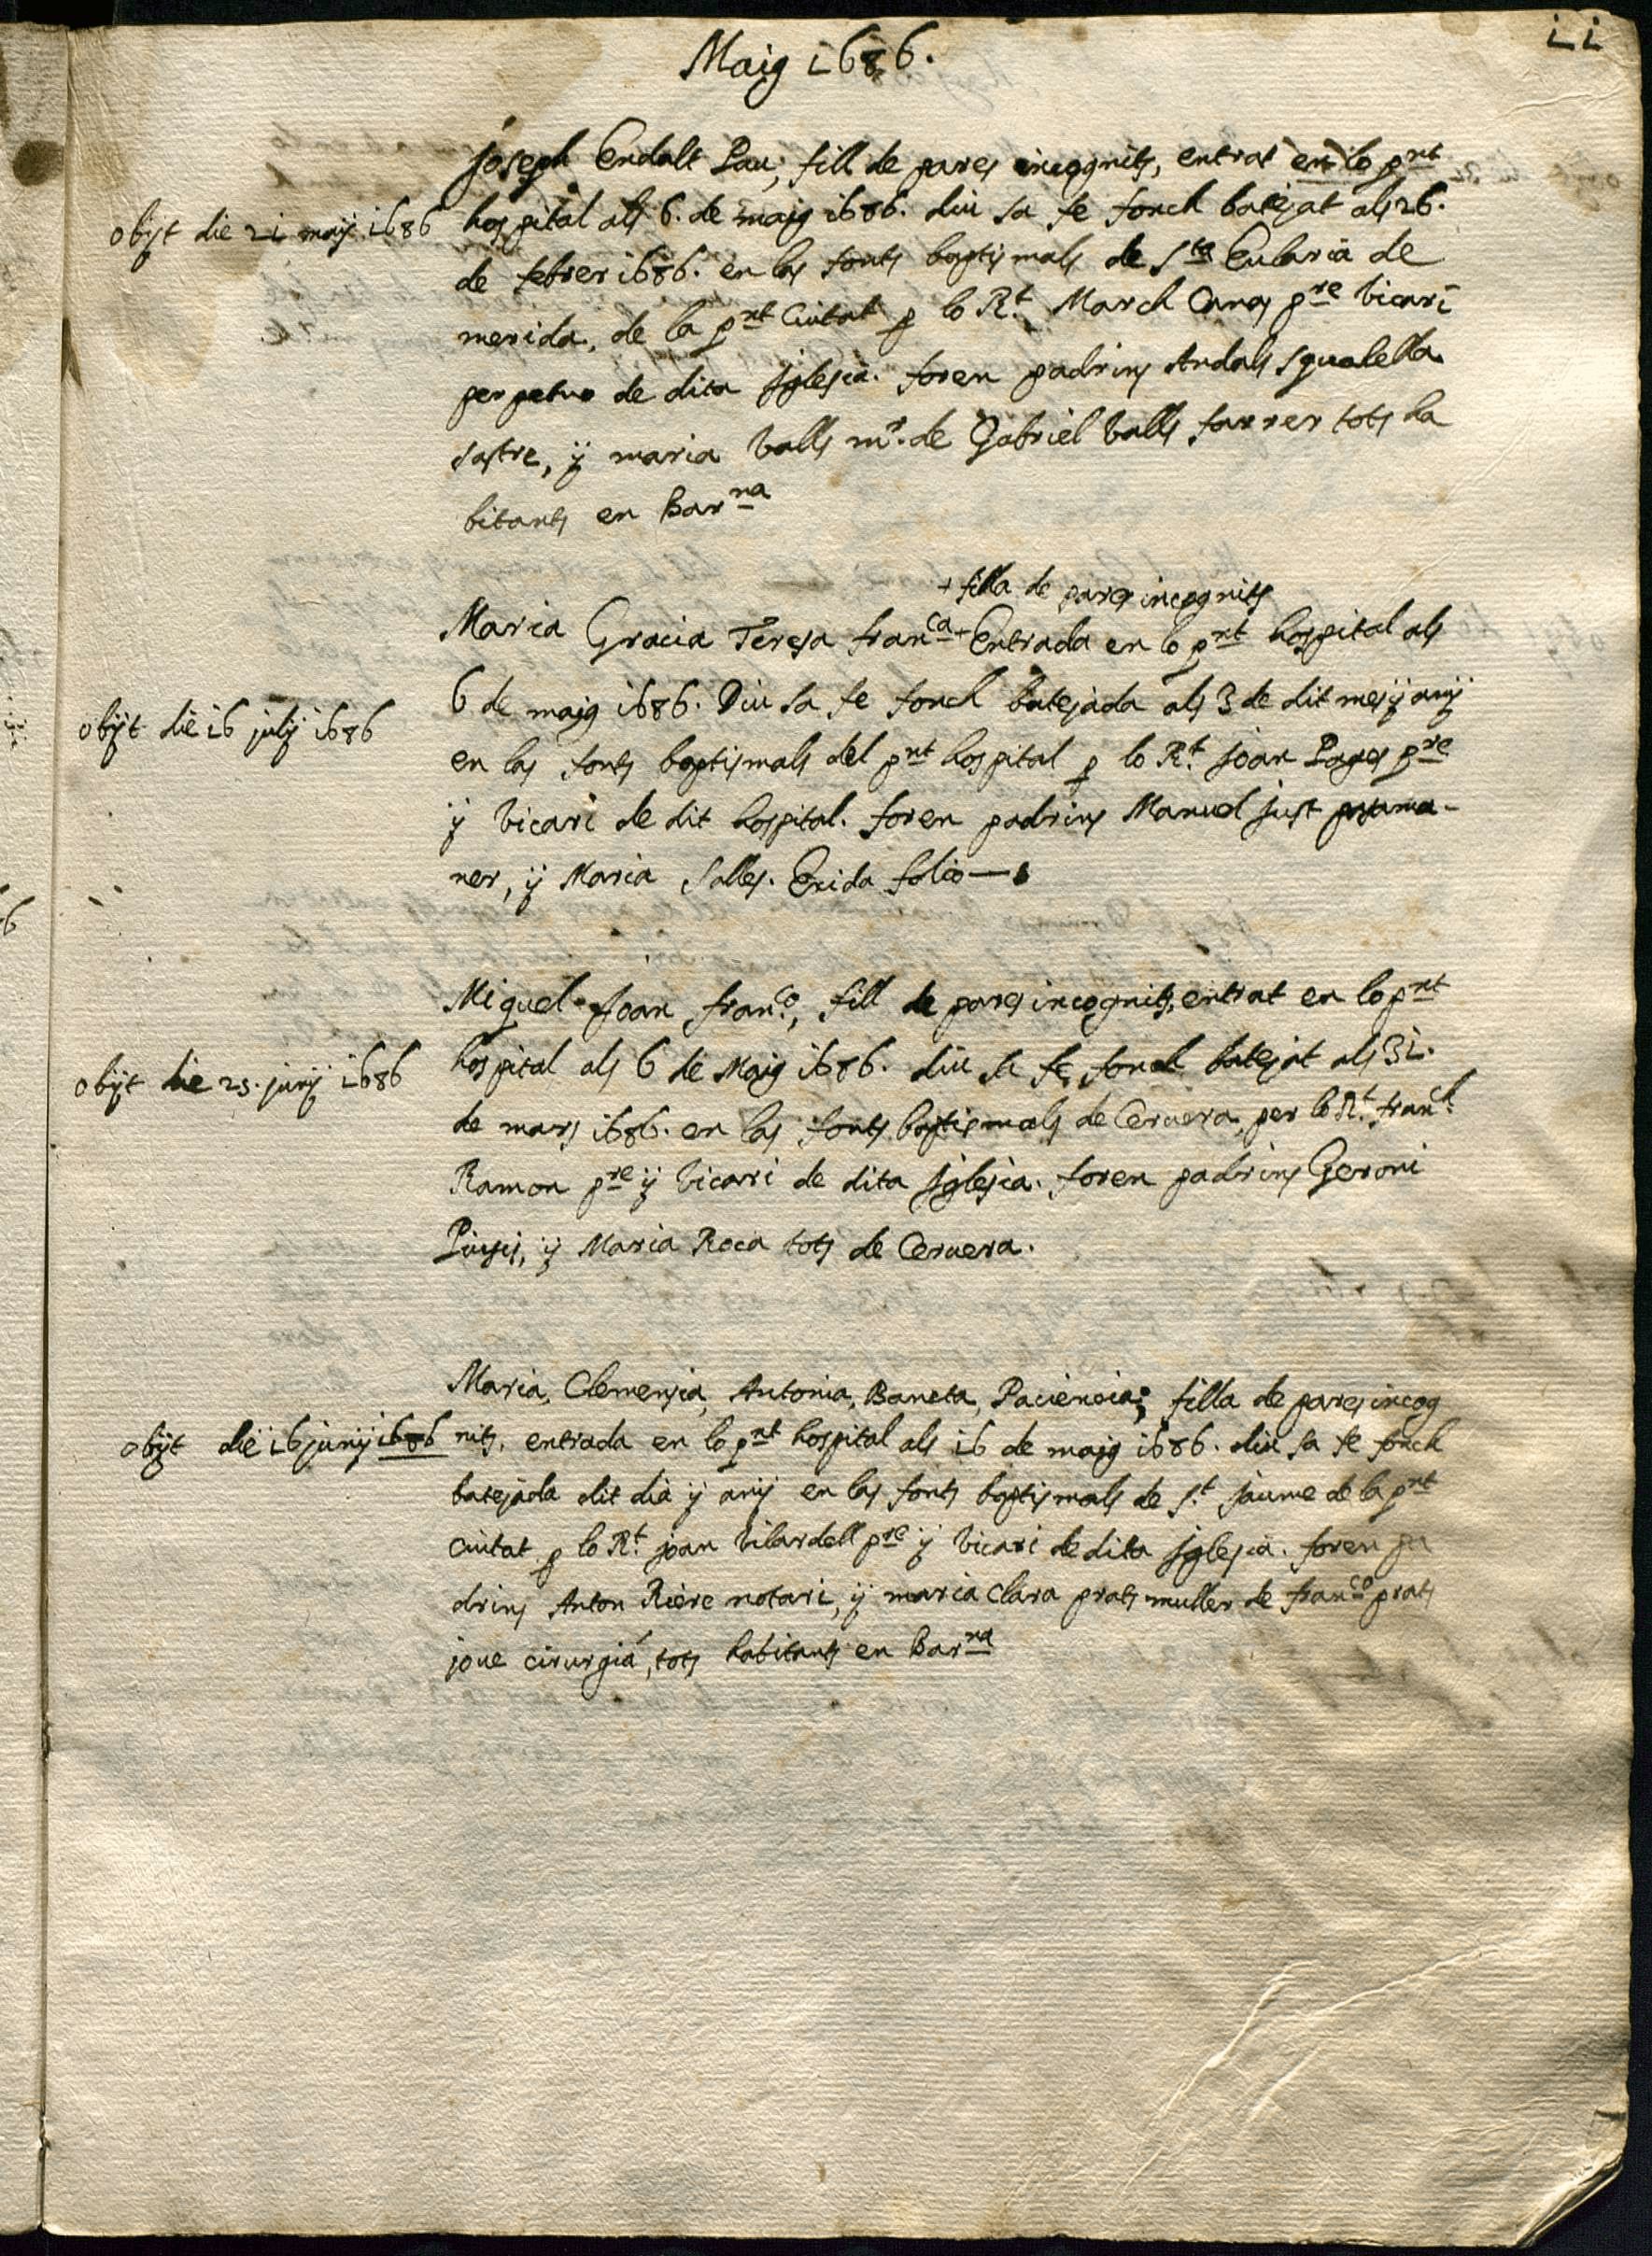 ii
Maig i686.
Joseph Endalt Pau, fill de pares incognits, entrat en lo pnt
obijt die 2i maij i686
hospital als 6. de maig i686. diu sa fe fonch batejat als 26.
de febrer i686. en las fonts baptismals de Sta Eularia de
merida, de la pnt Ciutat p lo Rt. March Canas pre vicari
perpetuo de dita Iglesia. foren padrins Andals Squalella
sastre, ÿ maria Valls mr. de Gabriel Valls farrer tots ha
bitants en Barna
+ filla de pares incognits
Maria Gracia Teresa franca+ Entrada en lo pnt hospital als
6 de maig i686. Diu sa fe fonch batejada als 3 de dit mes ÿ anÿ
obijt die i6 julij i686
en las fonts baptismals del pnt hospital p lo Rt. Joan Pages pre
ÿ vicari de dit hospital. foren padrins Manuel Just
ner, ÿ Maria Salles. Exida folio—
Miquel Joan franco, fill de pares incognits, entrat en lo pnt
obijt die 25. junij i686
hospital als 6 de Maig i686. diu sa fe fonch batejat als 3i.
de mars i686. en las fonts baptismals de Ceruera, per lo Rt. franch.
Ramon pre ÿ vicari de dita Iglesia. foren padrins Geroni
ÿ Maria Roca tots de Ceruera.
Maria, Clemensia, Antonia, Baneta, Paciencia; filla de pares incog
obijt die i6 junij i686
nits, entrada en lo pnt hospital als i6 de maig i686. diu sa fe fonch
batejada dit dia ÿ anÿ en las fonts baptismals de St. Jaume de la pnt
Ciutat p lo Rt. joan Vilardell pre ÿ vicari de dita Iglesia. foren pa
drins Anton Riere notari, ÿ maria Clara prats muller de franco prats
joue cirurgiá, tots habitants en Barna